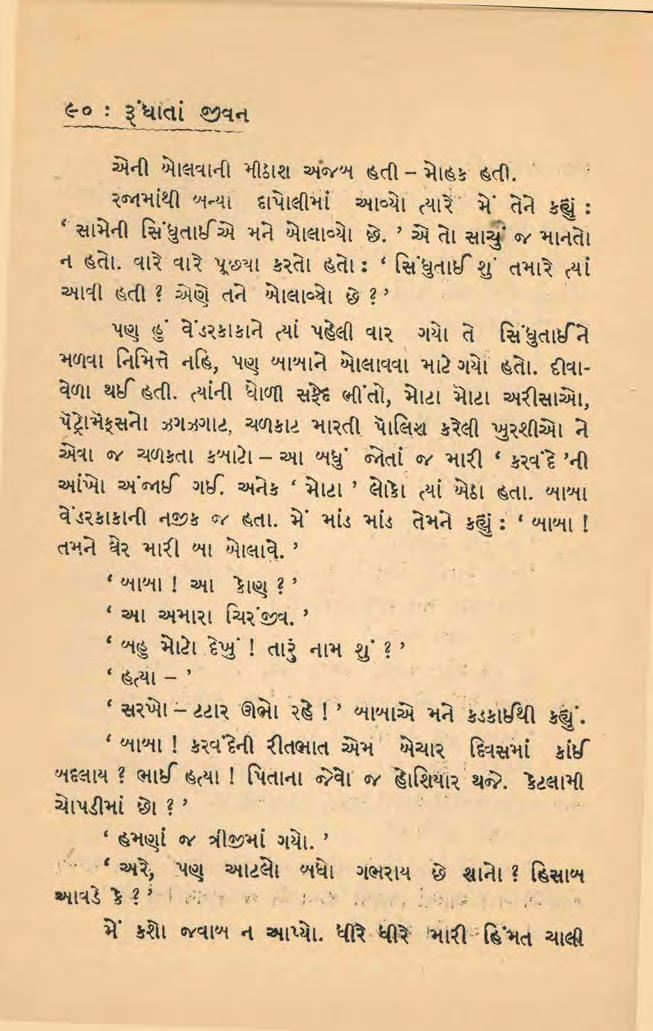 ૯૦ : રૂંધાતાં જીવન
એની બોલવાની મીઠાશ અજબ હતી – મોહક હતી.
રજામાંથી બન્યા દાપોલીમાં આવ્યો ત્યારે મેં તેને કહ્યું :
‘ સામેની સિંધુતાઈએ મને બોલાવ્યો છે. ’ એ તો સાચું જ માનતો
ન હતો. વારે વારે પૂછ્યા કરતો હતો : ‘ સિંધુતાઈ શું તમારે ત્યાં
આવી હતી ? એણે તને બોલાવ્યો છે ? ’
પણ હું વેંડરકાકાને ત્યાં પહેલી વાર ગયો તે સિંધુતાઈને
મળવા નિમિત્તે નહિ, પણ બાબાને બોલાવવા માટે ગયો હતો. દીવા-
વેળા થઈ હતી. ત્યાંની ધોળી સફેદ ભીંતો, મોટા મોટા અરીસાઓ,
પૅટ્રોમૅક્સનો ઝગઝગાટ, ચળકાટ મારતી પૉલિશ કરેલી ખુરશીઓ ને
એવા જ ચળકતા કબાટો – આ બધું જોતાં જ મારી ‘ કરવંદે ’ની
આંખો અંજાઈ ગઈ. અનેક ‘ મોટા ’ લોકો ત્યાં બેઠા હતા. બાબા
વેંડરકાકાની નજીક જ હતા. મેં માંડ માંડ તેમને કહ્યું : ‘ બાબા !
તમને ઘેર મારી બા બોલાવે. ’
‘ બાબા ! આ કોણ ? ’
‘ આ અમારા ચિરંજીવ. ’
‘ બહુ મોટો દેખું ! તારું નામ શું ? ’
‘ હત્યા – ’
‘ સરખો – ટટાર ઊભો રહે ! ’ બાબાએ મને કડકાઈથી કહ્યું.
‘ બાબા ! કરવંદેની રીતભાત એમ બેચાર દિવસમાં કાંઈ
બદલાય ? ભાઈ હત્યા ! પિતાના જેવો જ હોશિયાર થજે. કેટલામી
ચોપડીમાં છો ? ’
‘ હમણાં જ ત્રીજીમાં ગયો. ’
‘ અરે, પણ આટલો બધો ગભરાય છે શાનો ? હિસાબ
આવડે કે ? ’
મેં કશો જવાબ ન આપ્યો. ધીરે ધીરે મારી હિંમત ચાલી